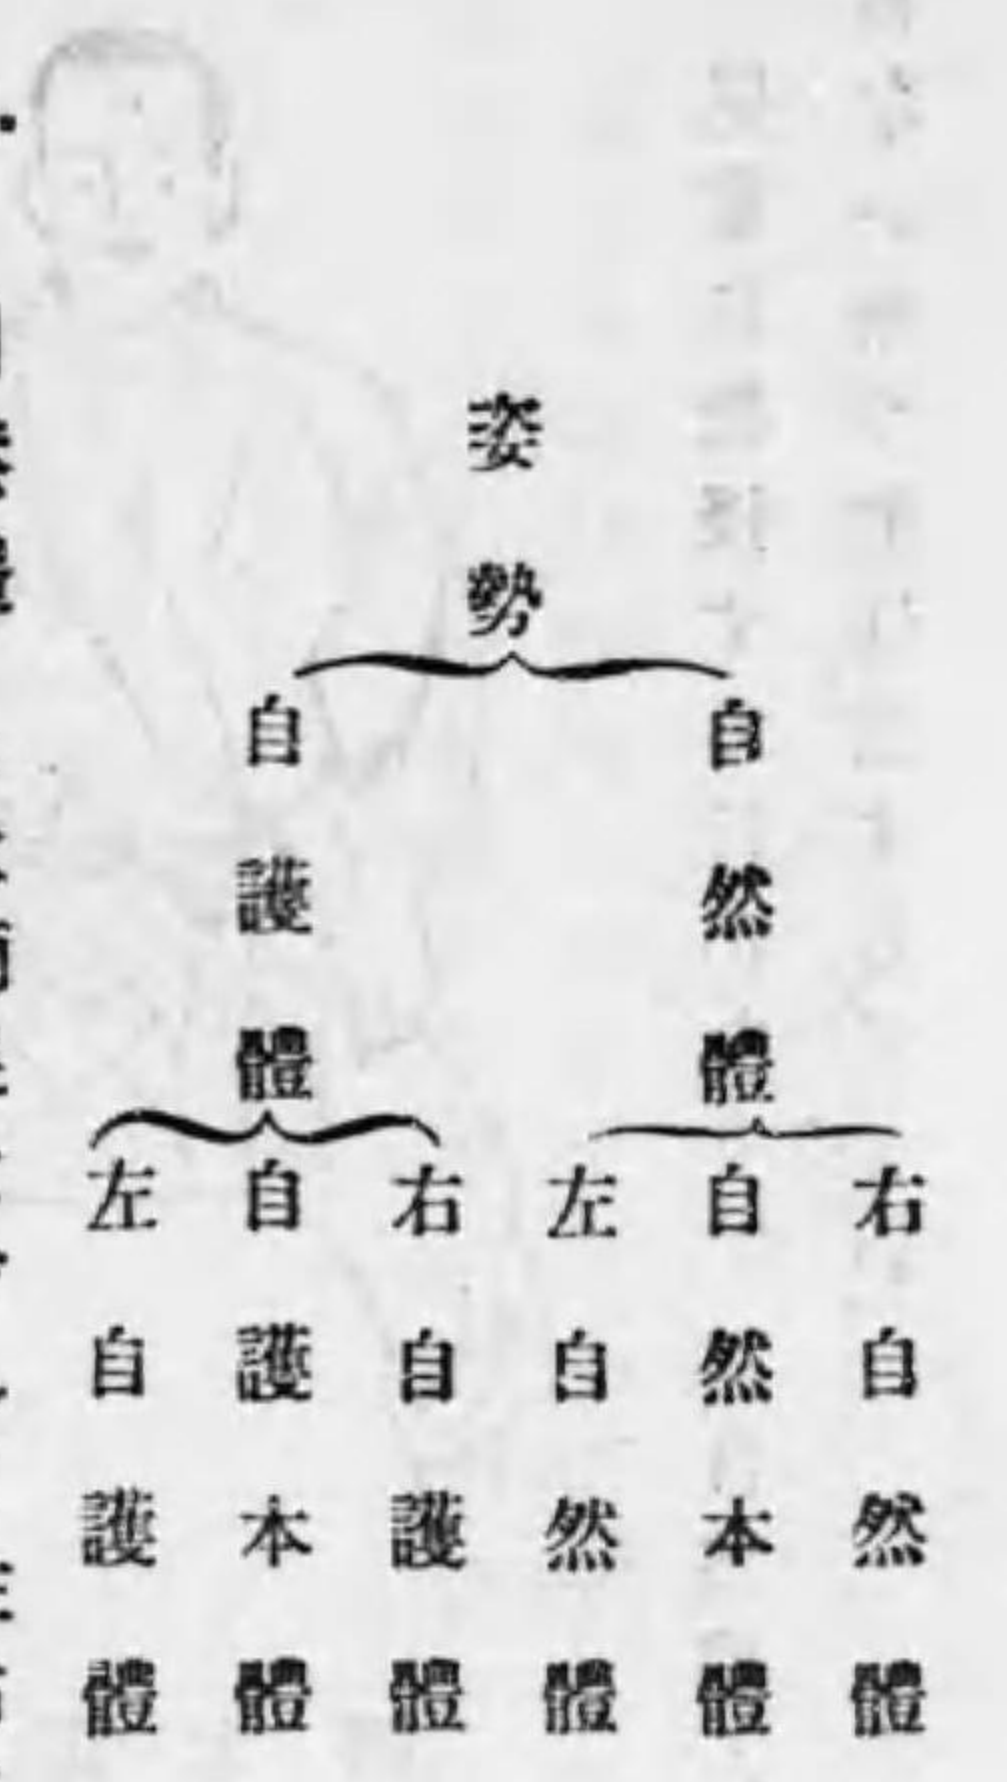 姿勢
自然體
右自然體
自然本體
左自然體
自護體
右自護體
自護本體
左自護體